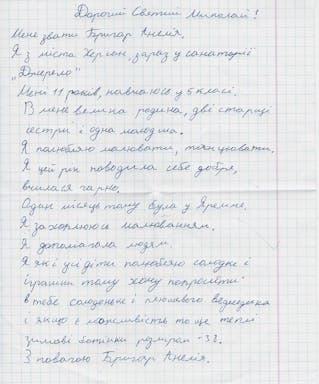 Дорогий Святий Миколай!
Мене звати Григар Анелія.
Я з міста Херсон, зараз у санаторії
"Джерело"
Мені 11 років, навчаюсь у 5 класі.
В мене велика родина, дві старші
сестри і одна молодша.
Я полюбляю малювати, танцювати.
Я цей рік поводила себе добре,
вчилася гарно.
Один місяць тому була у Яремче.
Я захоплююсь малюванням.
Я допомагала людям.
Я як і усі діти полюбляю солодке і
іграшки тому хочу попросити
в тебе солоденьке і плюшевого ведмедика
і якщо є можливість то ще теплі
зимові ботинки розміром - 38.
З повагою Григар Анелія.